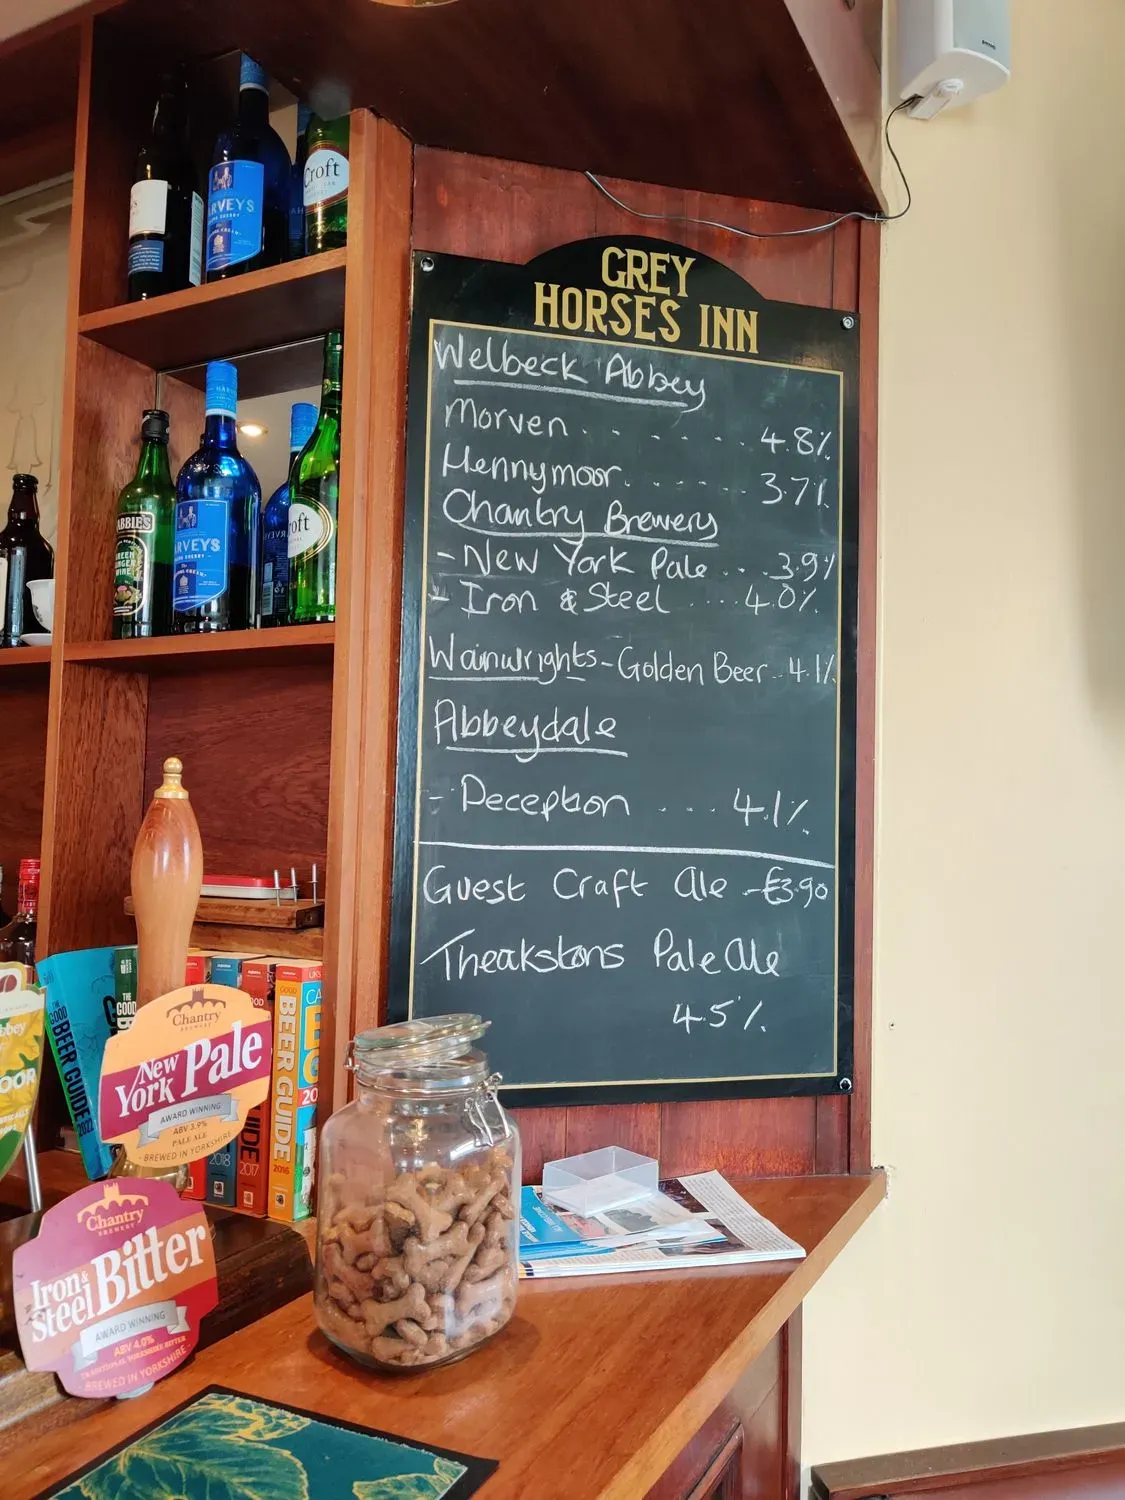 GREY
HORSES INN
Welbeck Abbey
Morven . . . . . . . 4.8%
Hennymoor . . . . . . 3.7%
Chantry Brewery
- New York Pale . . . 3.9%
- Iron & Steel . . . . 4.0%
Wainwrights - Golden Beer . . 4.1%
Abbeydale
- Deception . . . . 4.1%
Guest Craft Ale - £3.90
Theakstons Pale Ale
4.5%
Croft
HARVEYS
ARVEYS
oft
Chantry
BREWERY
New York Pale
AWARD WINNING
ABV 3.9%
PALE ALE
BREWED IN YORKSHIRE
Chantry
BREWERY
Iron & Steel Bitter
AWARD WINNING
ABV 4.0%
TRADITIONAL YORKSHIRE BITTER
BREWED IN YORKSHIRE
THE GOOD BEER GUIDE 2022
THE GOOD
2018
GUIDE 2017
GOOD BEER GUIDE 2016
bbey
OOR